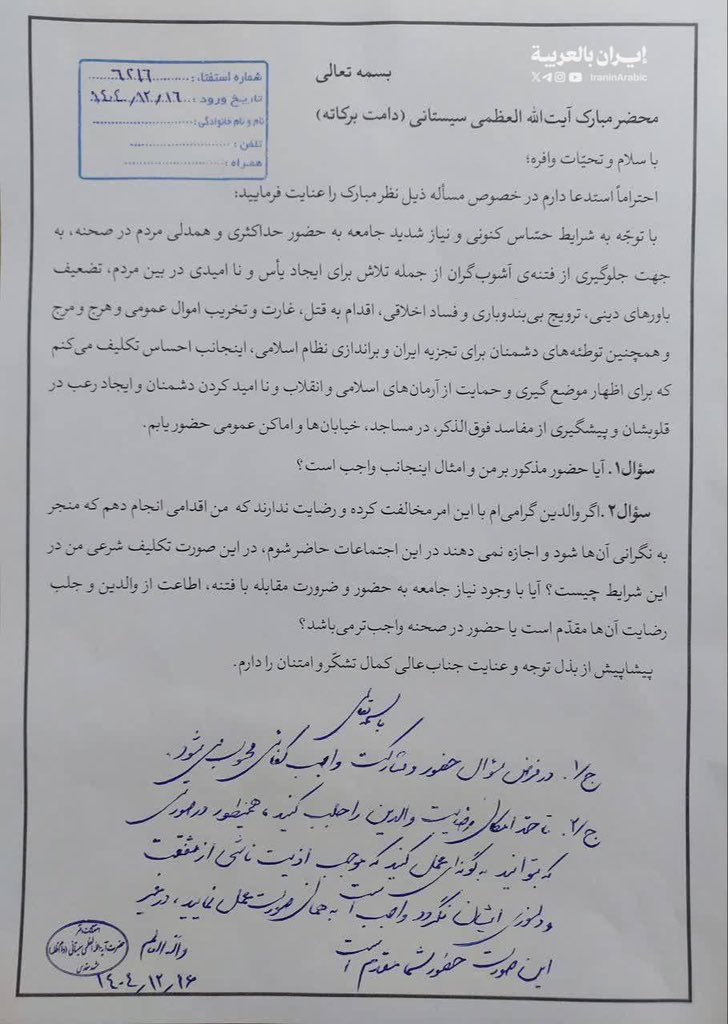 ایران بالعربية
IraninArabic
شماره استفتاء: ٦٢١٦
تاریخ ورود: ١٤٠٤/١٢/١٦
نام و نام خانوادگی:
تلفن:
همراه:
بسمه تعالی
محضر مبارک آیت‌الله العظمی سیستانی (دامت برکاته)
با سلام و تحیّات وافره؛
احتراماً استدعا دارم در خصوص مسأله ذیل نظر مبارک را عنایت فرمایید:
با توجّه به شرایط حسّاس کنونی و نیاز شدید جامعه به حضور حداکثری و همدلی مردم در صحنه، به
جهت جلوگیری از فتنه‌ی آشوب‌گران از جمله تلاش برای ایجاد یأس و نا امیدی در بین مردم، تضعیف
باورهای دینی، ترویج بی‌بندوباری و فساد اخلاقی، اقدام به قتل، غارت و تخریب اموال عمومی و هرج و مرج
و همچنین توطئه‌های دشمنان برای تجزیه ایران و براندازی نظام اسلامی، اینجانب احساس تکلیف می‌کنم
که برای اظهار موضع گیری و حمایت از آرمان‌های اسلامی و انقلاب و نا امید کردن دشمنان و ایجاد رعب در
قلوبشان و پیشگیری از مفاسد فوق‌الذکر، در مساجد، خیابان‌ها و اماکن عمومی حضور یابم.
سؤال۱. آیا حضور مذکور بر من و امثال اینجانب واجب است؟
سؤال۲. اگر والدین گرامی‌ام با این امر مخالفت کرده و رضایت ندارند که من اقدامی انجام دهم که منجر
به نگرانی آن‌ها شود و اجازه نمی دهند در این اجتماعات حاضر شوم، در این صورت تکلیف شرعی من در
این شرایط چیست؟ آیا با وجود نیاز جامعه به حضور و ضرورت مقابله با فتنه، اطاعت از والدین و جلب
رضایت آن‌ها مقدّم است یا حضور در صحنه واجب‌تر می‌باشد؟
پیشاپیش از بذل توجه و عنایت جناب‌عالی کمال تشکّر و امتنان را دارم.
باسمه تعالی
ج/۱. در فرض سؤال حضور و مشارکت واجب کفائی محسوب می‌شود.
ج/۲. تا حدّ امکان رضایت والدین را جلب کنید، همینطور در صورتی
که بتوانید به گونه‌ای عمل کنید که موجب اذیت ناشی از شفقت
و دلسوزی ایشان نگردد واجب است به همان صورت عمل نمایید، در غیر
این صورت حضور شما مقدم است
والله العالم
حضرت آیة الله العظمی سیستانی
۱۴۰۴/۱۲/۱۶